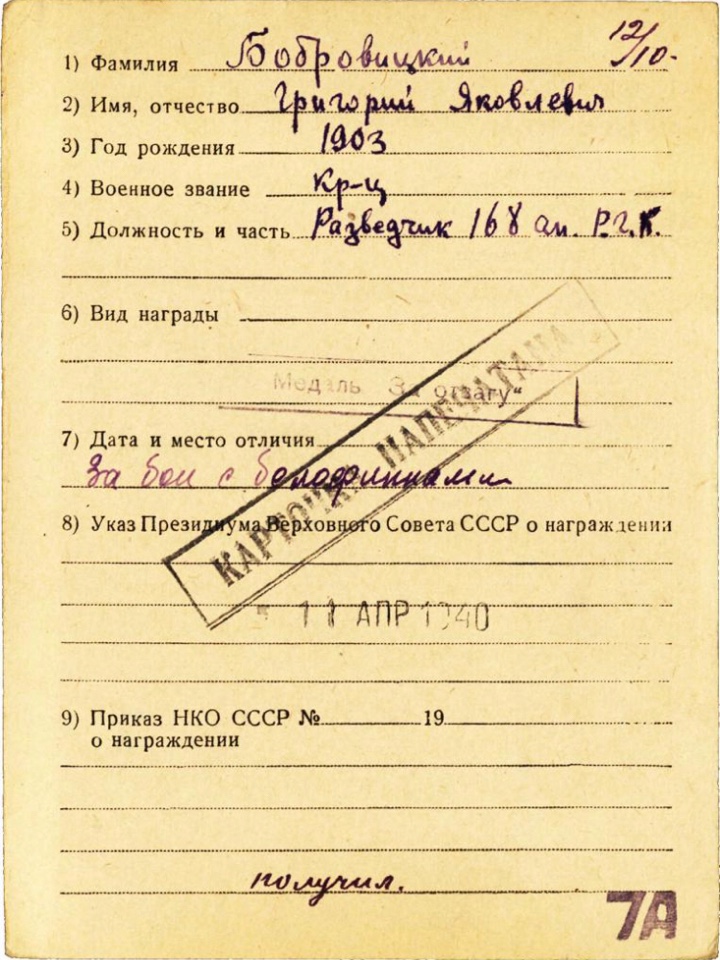 12/10-
1) Фамилия Бобровицкий
2) Имя, отчество Григорий Яковлевич
3) Год рождения 1903
4) Военное звание Кр-ц
5) Должность и часть Разведчик 168 ап. Р.Г.К.
6) Вид награды
Медаль "За отвагу"
7) Дата и место отличия
За бои с белофиннами
8) Указ Президиума Верховного Совета СССР о награждении
КАРТОЧКА НАПЕЧАТАНА
11 АПР 1940
9) Приказ НКО СССР № 19
о награждении
получил.
7А